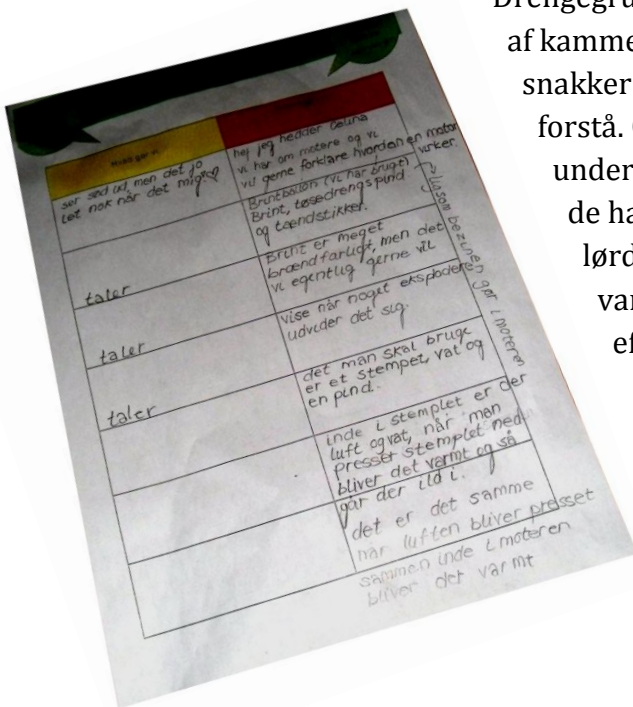 Drengegru
af kamme
snakker
forstå.
under
de ha
lørd
var
ef
Hvad gør vi
ser sød ud, men det jo
let nok når det mig
hej jeg hedder Celina
vi har om motere og vi
vil gerne forklare hvordan en motor
virker.
Brintballon (vi har brugt)
Brint, tøsedrengspind
og tændstikker.
ligesom benzinen gør i moteren
taler
Brint er meget
brændfarligt, men det
vi egentlig gerne vil
taler
vise når noget eksploderer
udvider det sig.
taler
det man skal bruge
er et stempel, vat og
en pind.
inde i stemplet er der
luft og vat, når man
presser stemplet ned
bliver det varmt og så
går der ild i.
det er det samme
når luften bliver presset
sammen inde i moteren
bliver det varmt